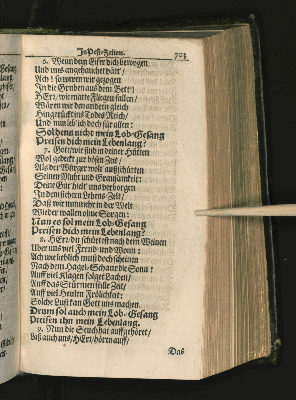 In Pest-Zeiten. 703
6. Wenn dein Eifer dich bewogen
Und uns angehauchet hätt/
Ach! so wären wir gezogen
In die Gruben aus dem Bett:
HErr/ wie matte Fliegen fallen/
Wären wir den andern gleich
Hingerückt ins Todes Reich/
Und nun leb ich doch für allen:
Sol denn nicht mein Lob-Gesang
Preisen dich mein Lebenlang?
7. Gott/ wir sind in deiner Hütten
Wol gedeckt zur bösen Zeit/
Als der Würger wolt ausschütten
Seinen Muht und Grausamkeit:
Deine Gut hielt uns verborgen
In dem sichern Lebens-Zelt/
Daß wir nunmehr in der Welt
Wieder wallen ohne Sorgen:
Nun so sol mein Lob-Gesang
Preisen dich mein Lebenlang?
8. HErr/ du schüttest nach dem Weinen
Uber uns viel Freud und Wonn:
Ach wie lieblich muß doch scheinen
Nach dem Hagel-Schaur die Sonn!
Auff viel Klagen folget Lachen/
Auff das Stürmen stille Zeit/
Auff viel Heulen Frölichkeit:
Solche Lust kan Gott uns machen.
Drum sol auch mein Lob-Gesang
Preisen ihn mein Lebenlang.
9. Nun die Seuch hat auffgehöret/
Laß auch uns/ HErr/ hören auff/
Das